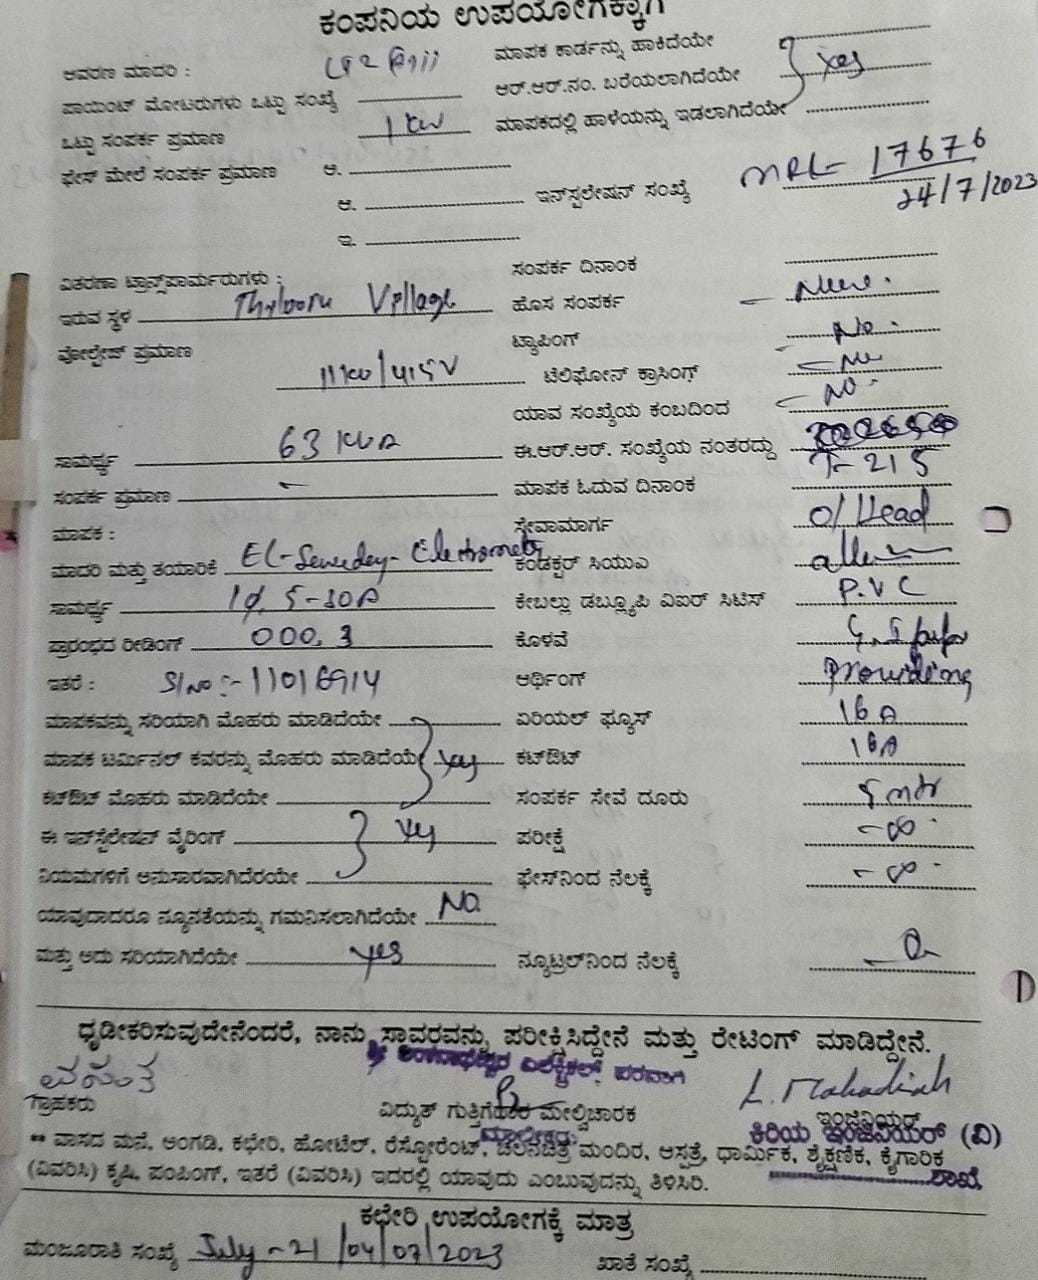 ಕಂಪನಿಯ ಉಪಯೋಗಕ್ಕಾಗಿ
ಆವರಣ ಮಾದರಿ : ಮಾಪಕ ಕಾರ್ಡನ್ನು ಹಾಕಿದೆಯೇ
ಪಾಯಿಂಟ್ ಮೋಟರುಗಳು ಒಟ್ಟು ಸಂಖ್ಯೆ ಆರ್.ಆರ್.ನಂ. ಬರೆಯಲಾಗಿದೆಯೇ yes
ಒಟ್ಟು ಸಂಪರ್ಕ ಪ್ರಮಾಣ 1 kw ಮಾಪಕದಲ್ಲಿ ಹಾಳೆಯನ್ನು ಇಡಲಾಗಿದೆಯೇ
ಫೇಸ್ ಮೇಲೆ ಸಂಪರ್ಕ ಪ್ರಮಾಣ ಅ.
ಆ. ಇನ್‌ಸ್ಟಲೇಷನ್ ಸಂಖ್ಯೆ MRL- 17676
24/7/2023
ಇ.
ವಿತರಣಾ ಟ್ರಾನ್ಸ್‌ಫಾರ್ಮರುಗಳು : ಸಂಪರ್ಕ ದಿನಾಂಕ
ಇರುವ ಸ್ಥಳ Thylooru Village ಹೊಸ ಸಂಪರ್ಕ
ವೋಲ್ಟೇಜ್ ಪ್ರಮಾಣ ಟ್ಯಾಪಿಂಗ್ No.
11kv/415V ಟೆಲಿಫೋನ್ ಕ್ರಾಸಿಂಗ್ - No
ಯಾವ ಸಂಖ್ಯೆಯ ಕಂಬದಿಂದ - No.
ಸಾಮರ್ಥ್ಯ 63 KVA ಈ.ಆರ್.ಆರ್. ಸಂಖ್ಯೆಯ ನಂತರದ್ದು
T- 215
ಸಂಪರ್ಕ ಪ್ರಮಾಣ - ಮಾಪಕ ಓದುವ ದಿನಾಂಕ
ಮಾಪಕ : ಸೇವಾಮಾರ್ಗ O/Head
ಮಾದರಿ ಮತ್ತು ತಯಾರಿಕೆ ಕಂಡಕ್ಟರ್ ಸಿಯುಎ
ಸಾಮರ್ಥ್ಯ 1φ, 5-30A ಕೇಬಲ್ಲು ಡಬ್ಲ್ಯೂಪಿ ವಿಐರ್ ಸಿಟಿಸ್ P.V C
ಪ್ರಾರಂಭದ ರೀಡಿಂಗ್ 000.3 ಕೊಳವೆ
ಇತರೆ : Sl No :- 11016914 ಅರ್ಥಿಂಗ್ Providing
ಮಾಪಕವನ್ನು ಸರಿಯಾಗಿ ಮೊಹರು ಮಾಡಿದೆಯೇ ಏರಿಯಲ್ ಫ್ಯೂಸ್ 16A
ಮಾಪಕ ಟರ್ಮಿನಲ್ ಕವರನ್ನು ಮೊಹರು ಮಾಡಿದೆಯೇ yes ಕಟ್‌ಔಟ್ 16A
ಕಟ್‌ಔಟ್ ಮೊಹರು ಮಾಡಿದೆಯೇ ಸಂಪರ್ಕ ಸೇವೆ ದೂರು 5 mtr
ಈ ಇನ್‌ಸ್ಟಲೇಷನ್ ವೈರಿಂಗ್ yes ಪರೀಕ್ಷೆ - ∞
ನಿಯಮಗಳಿಗೆ ಅನುಸಾರವಾಗಿದೆರಯೇ ಫೇಸ್‌ನಿಂದ ನೆಲಕ್ಕೆ - ∞
ಯಾವುದಾದರೂ ನ್ಯೂನತೆಯನ್ನು ಗಮನಿಸಲಾಗಿದೆಯೇ No
ಮತ್ತು ಅದು ಸರಿಯಾಗಿದೆಯೇ yes ನ್ಯೂಟ್ರಲ್‌ನಿಂದ ನೆಲಕ್ಕೆ
ಧೃಡೀಕರಿಸುವುದೇನೆಂದರೆ, ನಾನು ಸ್ಥಾವರವನ್ನು ಪರೀಕ್ಷಿಸಿದ್ದೇನೆ ಮತ್ತು ರೇಟಿಂಗ್ ಮಾಡಿದ್ದೇನೆ.
ಎಲೆಕ್ಟ್ರಿಕಲ್ಸ್ ಪರವಾಗಿ
ವಸಂತ L. Mahadiah
ಗ್ರಾಹಕರು ವಿದ್ಯುತ್ ಗುತ್ತಿಗೆದಾರ ಮೇಲ್ವಿಚಾರಕ ಇಂಜಿನಿಯರ್
ಮಾಲೀಕರು ಕಿರಿಯ ಇಂಜಿನಿಯರ್ (ವಿ)
** ವಾಸದ ಮನೆ, ಅಂಗಡಿ, ಕಛೇರಿ, ಹೋಟೆಲ್, ರೆಸ್ಟೋರೆಂಟ್, ಚಲನಚಿತ್ರ ಮಂದಿರ, ಆಸ್ಪತ್ರೆ, ಧಾರ್ಮಿಕ, ಶೈಕ್ಷಣಿಕ, ಕೈಗಾರಿಕ
(ವಿವರಿಸಿ) ಕೃಷಿ, ಪಂಪಿಂಗ್, ಇತರೆ (ವಿವರಿಸಿ) ಇದರಲ್ಲಿ ಯಾವುದು ಎಂಬುವುದನ್ನು ತಿಳಿಸಿರಿ. ಶಾಖೆ
ಕಛೇರಿ ಉಪಯೋಗಕ್ಕೆ ಮಾತ್ರ
ಮಂಜೂರಾತಿ ಸಂಖ್ಯೆ July - 21 /04/07/2023 ಖಾತೆ ಸಂಖ್ಯೆ